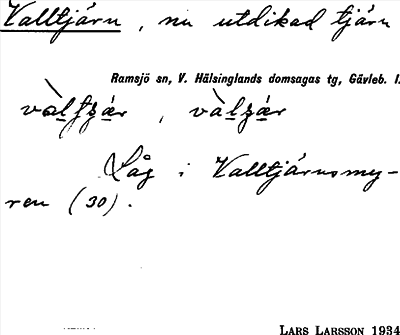 Valltjärn, nu utdikad tjärn
Ramsjö sn, V. Hälsinglands domsagas tg, Gävleb. l.
Låg i Valltjärnsmy-
ren (30).
LARS LARSSON 1934